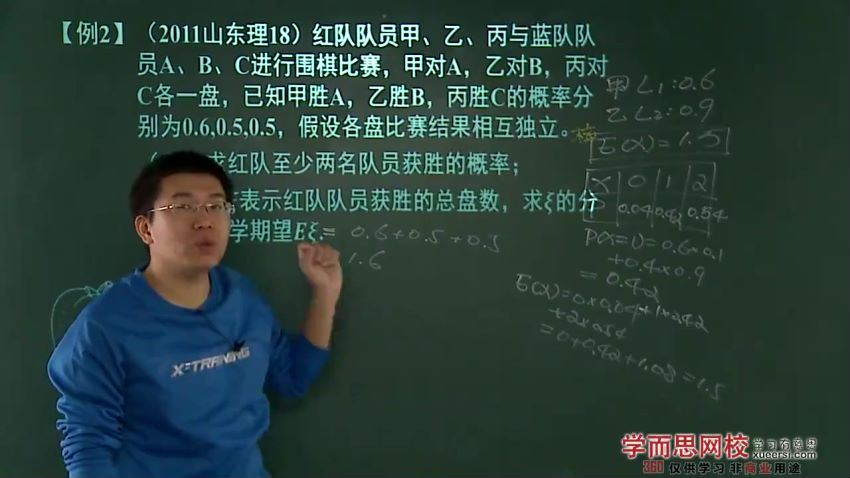 【例2】（2011山东理18）红队队员甲、乙、丙与蓝队队
员A、B、C进行围棋比赛，甲对A，乙对B，丙对
C各一盘，已知甲胜A，乙胜B，丙胜C的概率分
别为0.6,0.5,0.5，假设各盘比赛结果相互独立。
求红队至少两名队员获胜的概率；
表示红队队员获胜的总盘数，求ξ的分
学期望Eξ = 0.6+0.5+0.5
1.6
甲 L1:0.6
乙 L2:0.9
E(X)=1.5
X 0 1 2
0.04 0.42 0.54
P(X=1)=0.6×0.1
+0.4×0.9
=0.42
E(X)=0×0.04+1×0.42
+2×0.54
=0+0.42+1.08=1.5
X-TRAINING
学而思网校 学习有意思
xueersi.com
360 仅供学习 非商业用途